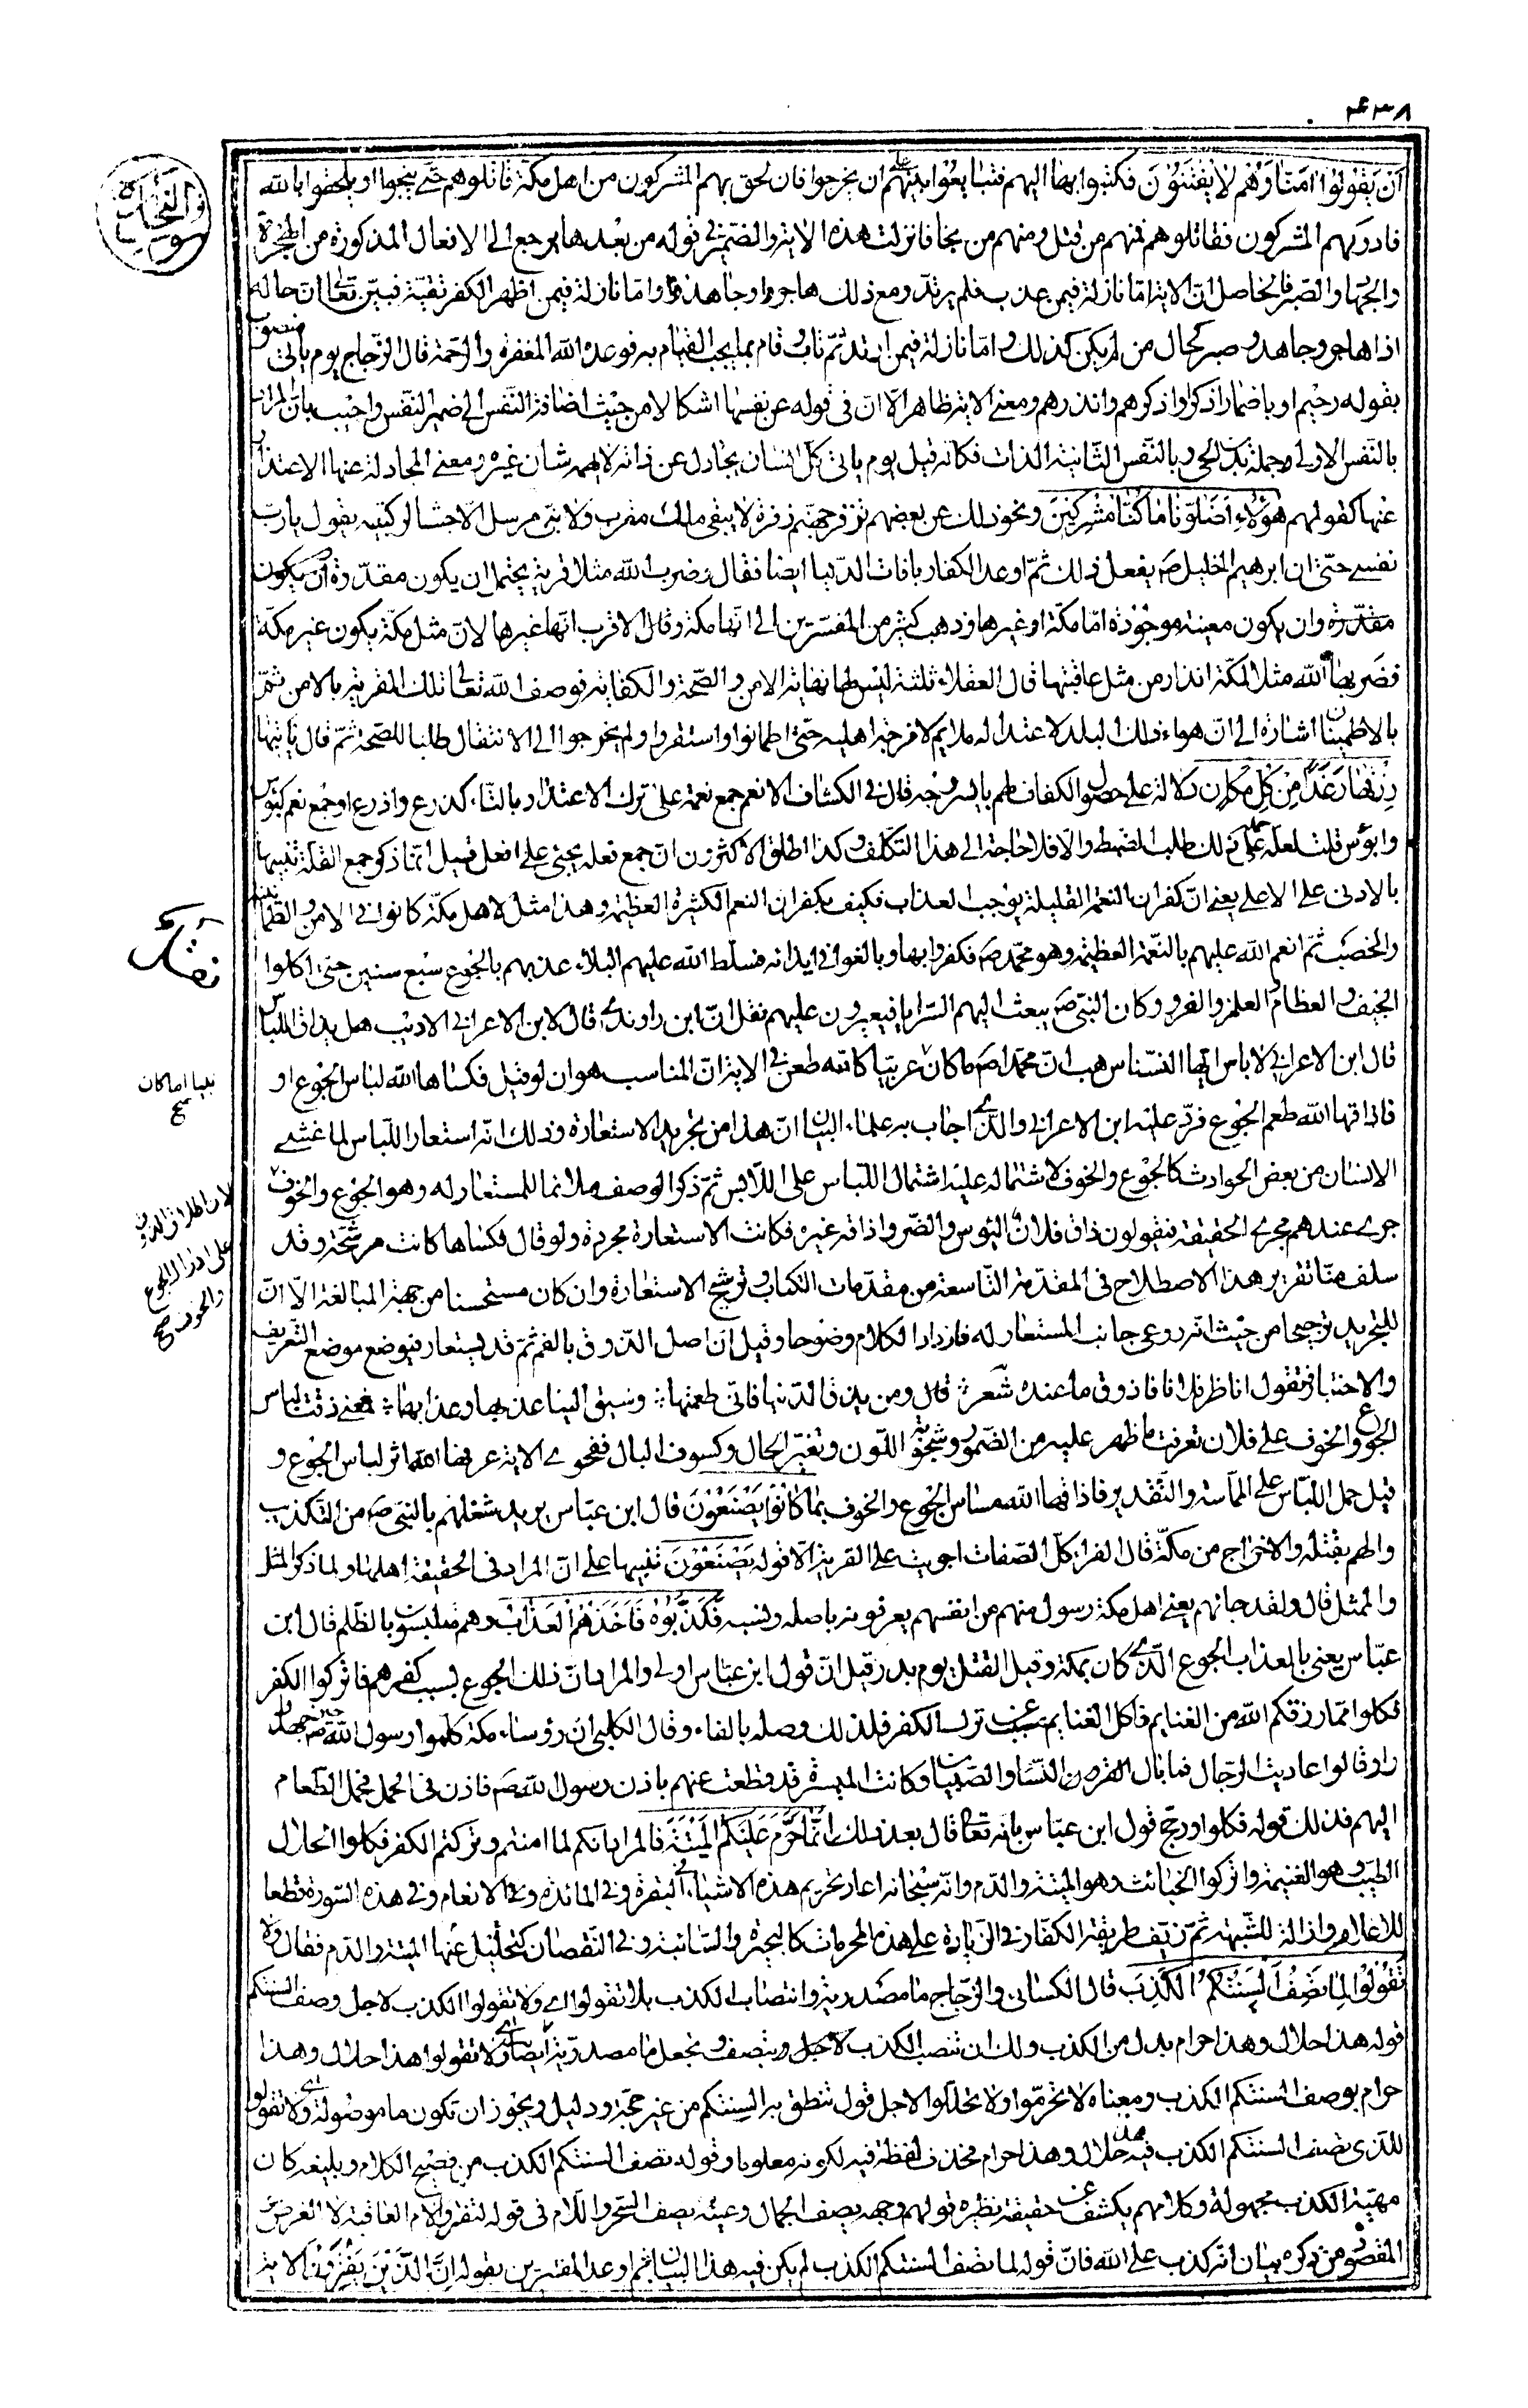 ۴۳۸
اَنْ يَقُولُوا اٰمَنّا وَهُمْ لا يُفْتَنُونَ فكتبوا بها اليهم فتبايعوا بينهم على ان يخرجوا فان لحق بهم المشركون من اهل مكة قاتلوهم حتى ينجوا او يلحقوا بالله
فادركهم المشركون فقاتلوهم فمنهم من قتل ومنهم من نجا فانزلت هذه الاية والضمير فى قوله من بعدها يرجع الى الافعال المذكورة من الهجرة
والجهاد والصبر فالحاصل ان الاية اما نازلة فيمن عذب فلم يرتد ومع ذلك هاجروا وجاهدوا واما نازلة فيمن اظهر الكفر تقية فبين تعالى ان حاله
اذا هاجر وجاهد وصبر كحال من لم يكن كذلك واما نازلة فيمن ارتد ثم تاب وقام بما يجب القيام به فوعده الله المغفرة والرحمة قال الزجاج يوم ياتى منصوب
بقوله رحيم او باضمار اذكر واذكرهم وانذرهم ومعنى الاية ظاهر الا ان فى قوله عن نفسها اشكالا من حيث اضافة النفس الى ضمير النفس واجيب بان المراد
بالنفس الاولى جملة بدن الحى وبالنفس الثانية الذات فكانه قيل يوم ياتى كل انسان يجادل عن ذاته لا يهمه شان غيره ومعنى المجادلة عنها الاعتذار
عنها كقولهم هؤُلاءِ اَضَلّونا ما كُنّا مُشرِكينَ ونحو ذلك عن بعضهم تزفر جهنم زفرة لا يبقى ملك مقرب ولا نبى مرسل الا جثا لركبتيه يقول يا رب
نفسى حتى ان ابرهيم الخليل ص يفعل ذلك ثم اوعد الكفار بافات الدنيا ايضا فقال وضرب الله مثلا قرية يحتمل ان يكون مقدرة ان يكون
مقدرة وان يكون معينة موجودة اما مكة او غيرها وذهب كثير من المفسرين الى انها مكة وقال الاقرب انها غيرها لان مثل مكة يكون غير مكة
فضربها الله مثلا لمكة انذارا من مثل عاقبتها قال العقلاء ثلثة ليس لها نهاية الامن والصحة والكفاية فوصف الله تعالى تلك القرية بالامن ثم
بالاطمينان اشارة الى ان هواء ذلك البلد لاعتداله ملايم لامزجة اهليه حتى اطمانوا واستقروا ولم يحوجوا الى الانتقال طلبا للصحة ثم قال ياتيها
رِزْقُها رَغَدًا مِنْ كُلِّ مكان دلالة على حصول الكفاف لهم بايسر وجه قال فى الكشاف الانعم جمع نعمة على ترك الاعتداد بالتاء كدرع وادرع او جمع نعم كبؤس
وابؤس قلت لعله حمله على ذلك طلب الضبط والا فلا حاجة الى هذا التكلف وكذا اطلق الاكثرون ان جمع فعلة يجئ على افعل قيل انما ذكر جمع القلة تنبيها
بالادنى على الاعلى يعنى ان كفران النعم القليلة يوجب العذاب فكيف بكفران النعم الكثيرة العظيمة وهذا مثل لاهل مكة كانوا فى الامن والطمانينة
والخصب ثم انعم الله عليهم بالنعمة العظيمة وهو محمد ص فكفروا بها وبالغوا فى ايذائه فسلط الله عليهم البلاء عذبهم بالجوع سبع سنين حتى اكلوا
الجيف والعظام والعلهز والفرو وكان النبى ص يبعث اليهم السرايا فيغيرون عليهم نقل ان ابن راوندى قال لابن الاعرابى الاديب هل يذاق اللباس
قال ابن الاعرابى لا باس ايها النسناس هب ان محمدا ص ما كان عربيا كانه طعن فى الاية ان المناسب هو ان لو قيل فكساها الله لباس الجوع او
فاذاقها الله طعم الجوع فرد عليه ابن الاعرابى والذى اجاب به علماء البيان ان هذا من تجريد الاستعارة وذلك انه استعار اللباس لما غشى
الانسان من بعض الحوادث كالجوع والخوف لاشتماله عليه اشتمال اللباس على اللابس ثم ذكر الوصف ملائما للمستعار له وهو الجوع والخوف
جرى عندهم مجرى الحقيقة فيقولون ذاق فلان البؤس والضر واذاقه غيره فكانت الاستعارة مجردة ولو قال فكساها كانت مرشحة وقد
سلف منا تقرير هذا الاصطلاح فى المقدمة التاسعة من مقدمات الكتاب وترشيح الاستعارة وان كان مستحسنا من جهة المبالغة الا ان
للتجريد ترجيحا من حيث انه روعى جانب المستعار له فازداد الكلام وضوحا وقيل ان اصل الذوق بالفم ثم قد يستعار فيوضع موضع التعريف
والاختبار فتقول اناظر فلانا فاذوق ما عنده شعر قال ومن يذق الدنيا فانى طعمتها وسيق الينا عذبها وعذابها فمعنى ذقت لباس
الجوع والخوف على فلان تعرفت ما ظهر عليه من الضمور وشحوبة اللون وتغير الحال وكسوف البال ففحوى الاية عرفها الله اثر لباس الجوع و
قيل حمل اللباس على المماسة والتقدير فاذاقها الله مساس الجوع والخوف بِما كانُوا يَصْنَعُونَ قال ابن عباس يريد شغلهم بالنبى ص من التكذيب
والهم بقتله والاخراج من مكة قال الفراء كل الصفات اجريت على القرية الا قوله يَصْنَعُونَ تنبيها على ان المراد فى الحقيقة اهلها ولما ذكر المثل
والممثل قال ولقد جائهم يعنى اهل مكة رسول منهم من انفسهم يعرفونه باصله ونسبه فَكَذَّبُوهُ فَاَخَذَهُمُ العَذابُ وهم متلبسون بالظلم قال ابن
عباس يعنى بالعذاب الجوع الذى كان بمكة وقيل القتل يوم بدر وقيل ان قول ابن عباس اولى والمراد ان ذلك الجوع بسبب كفرهم فاتركوا الكفر
فكلوا مما رزقكم الله من الغنايم فاكل الغنايم مسبب عن ترك الكفر فلذلك وصله بالفاء وقال الكلبى ان رؤساء مكة كلموا رسول الله ص حين جهدوا
وقالوا عاديت الرجال فما بال النساء والصبيان وكانت الميرة قد قطعت عنهم باذن رسول الله ص فاذن فى الحمل فحمل الطعام
اليهم فذلك قوله فكلوا ورجح قول ابن عباس بانه تعالى قال بعد ذلك اِنَّما حَرَّمَ عَلَيْكُمُ المَيْتَةَ فالمراد انكم لما امنتم وتركتم الكفر فكلوا الحلال
الطيب وهو الغنيمة واتركوا الخبائث وهو الميتة والدم وانه سبحانه اعاد تحريم هذه الاشياء فى البقرة وفى المائدة وفى الانعام وفى هذه السورة قطعا
للاعذار وازالة للشبهة ثم زيف طريقة الكفار فى الزيادة على هذه المحرمات كالبحيرة والسائبة وفى النقصان كتحليل عنها الميتة والدم فقال ولا
تَقُولُوا لِما تَصِفُ اَلْسِنَتُكُمُ الكَذِبَ قال الكسائى والزجاج ما مصدرية وانتصاب الكذب بلا تقولوا اى ولا تقولوا الكذب لاجل وصف السنتكم
قوله هذا حلال وهذا حرام بدل من الكذب ولك ان تنصب الكذب بتصف وتجعل ما مصدرية ايضا اى ولا تقولوا هذا حلال وهذا
حرام بوصف السنتكم الكذب ومعناه لا تحرموا ولا تحللوا لاجل قول تنطق به السنتكم من غير حجة ودليل ويجوز ان تكون ما موصولة اى ولا تقولوا
للذى تصف السنتكم الكذب فيه هذا حلال وهذا حرام فحذف لفظة فيه لكونه معلوما وقوله تصف السنتكم الكذب من فصيح الكلام وبليغه كان
مهية الكذب مجهولة وكلامهم يكشف عن حقيقته نظيره قولهم وجهه يصف الجمال وعينه يصف السحر واللام فى قوله لتفتروا لام العاقبة لا الغرض
المقصود من ذكره بيان انه كذب على الله فان قوله لما تصف السنتكم الكذب لم يكن فيه هذا البيان ثم اوعد المفترين بقوله اِنَّ الَّذينَ يَفْتَرُونَ الاية
نبيا اما كان
صح
لان اطلاق الذوق
على ادراك الجوع
والخوف صح